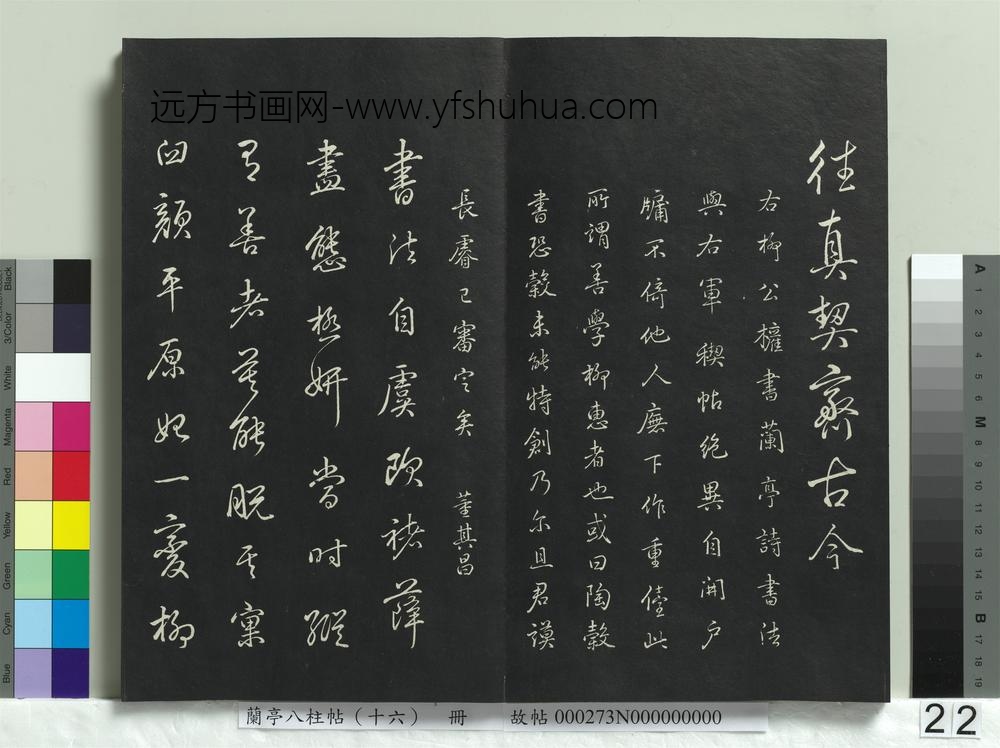 远方书画网-www.yfshuhua.com
往真契齊古今
右柳公權書蘭亭詩書法
與右軍稧帖絕異自開戶
牖不倚他人廡下作重儓此
所謂善學柳惠者也或曰陶穀
書恐穀未能特創乃尔且君謨
長睿已審定矣 董其昌
書法自虞歐褚薛
盡態極妍當時縱
有善者莫能脫其窠
臼顏平原始一變柳
蘭亭八柱帖（十六） 冊 故帖 000273N000000000
22
Black
3/Color
White
Magenta
Red
Yellow
Green
Cyan
Blue
A
1
2
3
4
5
6
M
8
9
10
11
12
13
14
15
B
17
18
19